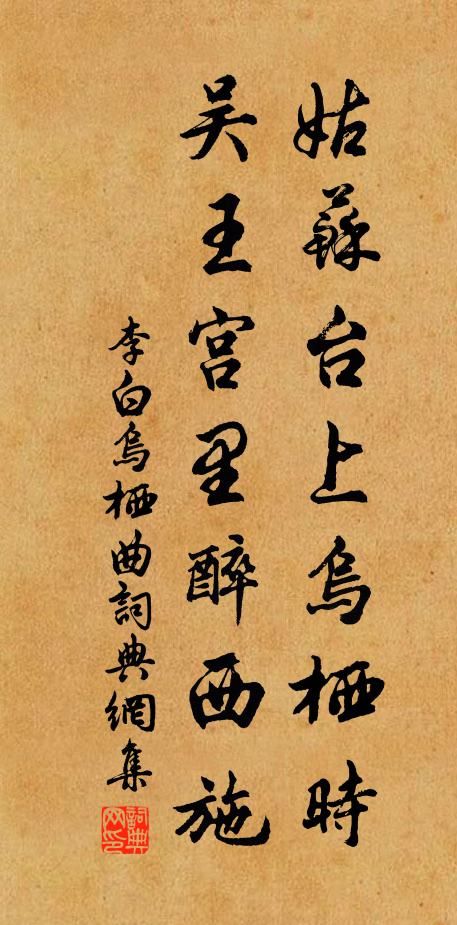 姑蘇台上烏栖時
吴王宫里醉西施
李白烏栖曲詞典網集
詞典网印